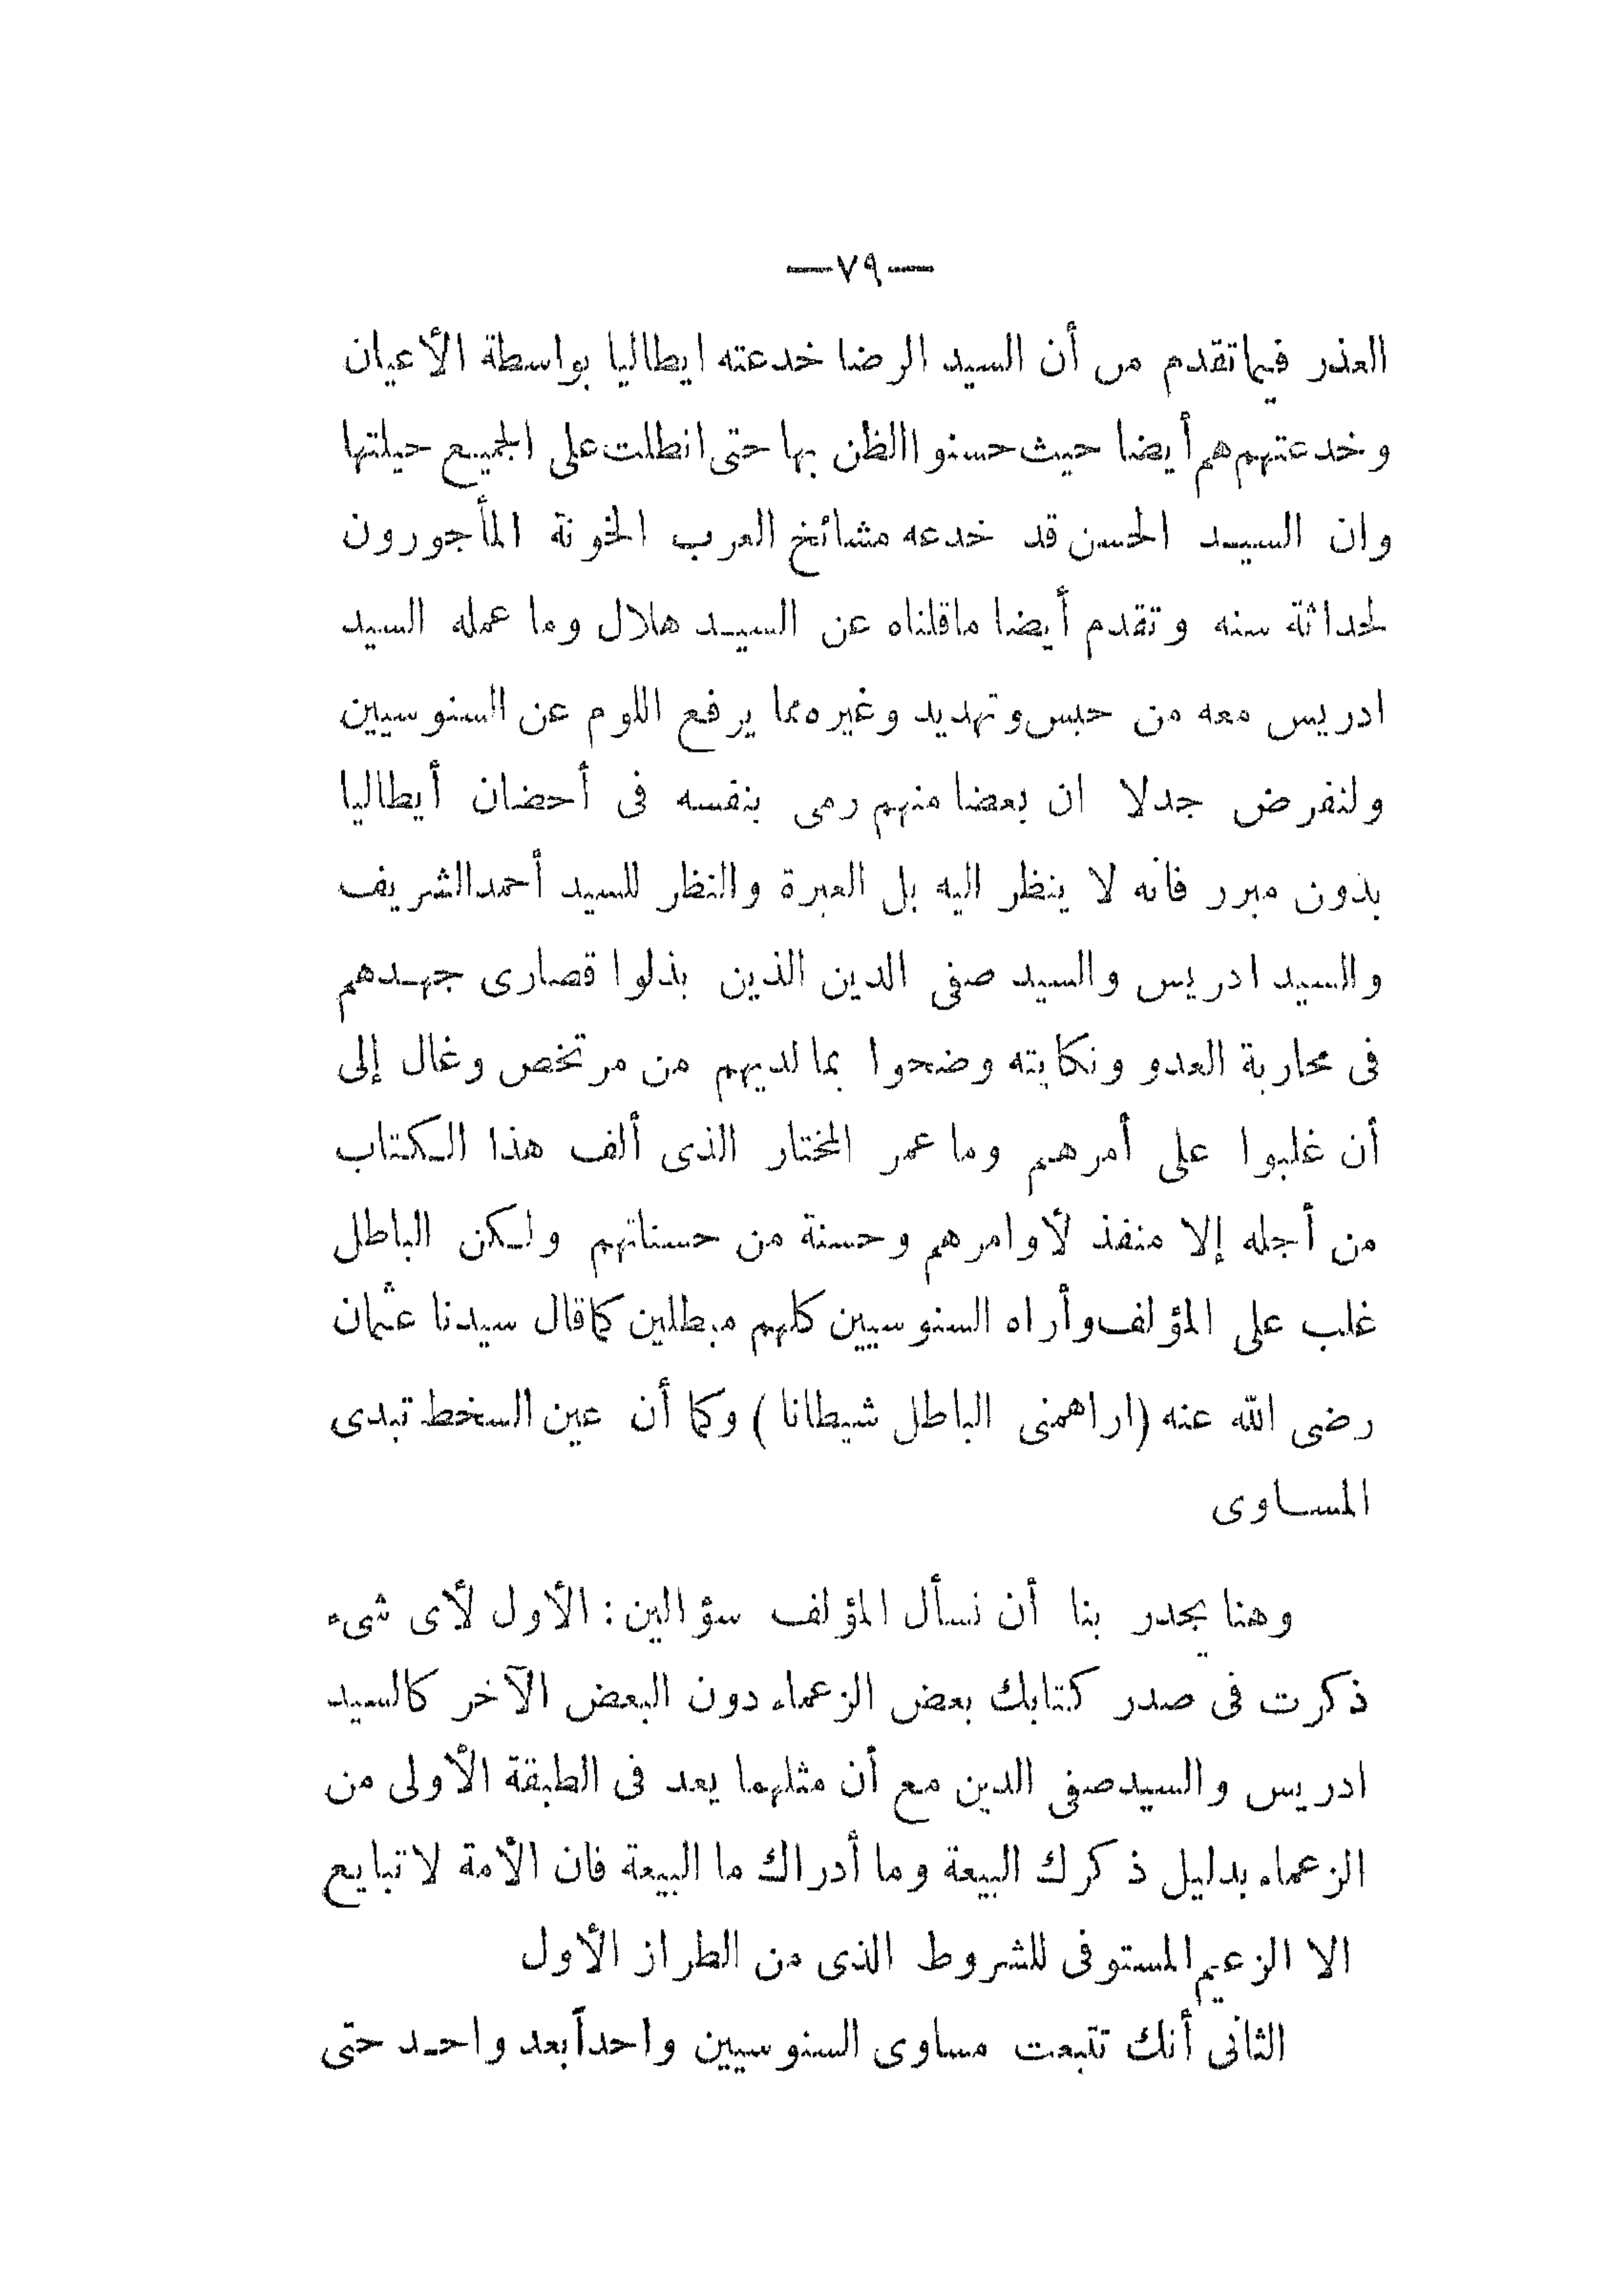 —٧٩—
العذر فيما تقدم من أن السيد الرضا خدعته ايطاليا بواسطة الأعيان
وخدعتهم هم أيضا حيث حسنوا الظن بها حتى انطلت على الجميع حيلتها
وان السيد الحسن قد خدعه مشائخ العرب الخونة المأجورون
لحداثة سنه وتقدم أيضا ماقلناه عن السيد هلال وما عمله السيد
ادريس معه من حبس وتهديد وغيره مما يرفع اللوم عن السنوسيين
ولنفرض جدلا ان بعضا منهم رمى بنفسه فى أحضان أيطاليا
بدون مبرر فانه لا ينظر اليه بل العبرة والنظر للسيد أحمد الشريف
والسيد ادريس والسيد صفى الدين الذين بذلوا قصارى جهدهم
فى محاربة العدو ونكايته وضحوا بما لديهم من مرتخص وغال إلى
أن غلبوا على أمرهم وما عمر المختار الذى ألف هذا الكتاب
من أجله إلا منفذ لأوامرهم وحسنة من حسناتهم ولكن الباطل
غلب على المؤلف وأراه السنوسيين كلهم مبطلين كما قال سيدنا عثمان
رضى الله عنه (اراهمنى الباطل شيطانا) وكما أن عين السخط تبدى
المساوى
وهنا يجدر بنا أن نسأل المؤلف سؤالين: الأول لأى شىء
ذكرت فى صدر كتابك بعض الزعماء دون البعض الآخر كالسيد
ادريس والسيد صفى الدين مع أن مثلهما يعد فى الطبقة الأولى من
الزعماء بدليل ذكرك البيعة وما أدراك ما البيعة فان الأمة لا تبايع
الا الزعيم المستوفى للشروط الذى من الطراز الأول
الثانى أنك تتبعت مساوى السنوسيين واحداً بعد واحد حتى